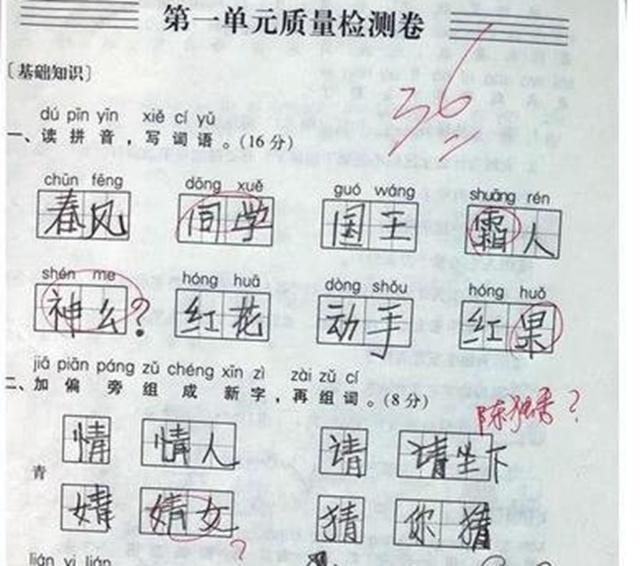 第一单元质量检测卷
36
〔基础知识〕
dú pīn yīn xiě cí yǔ
一、读拼音，写词语。(16分)
chūn fēng dōng xuě guó wáng shuāng rén
春风 同学 国王 霜人
shén me hóng huā dòng shǒu hóng huǒ
神么? 红花 动手 红果
jiā piān páng zǔ chéng xīn zì zài zǔ cí
二、加偏旁组成新字，再组词。(8分)
?
情 情人 请 请坐下
青
婧 婧女 猜 你猜
?
lián yi lián